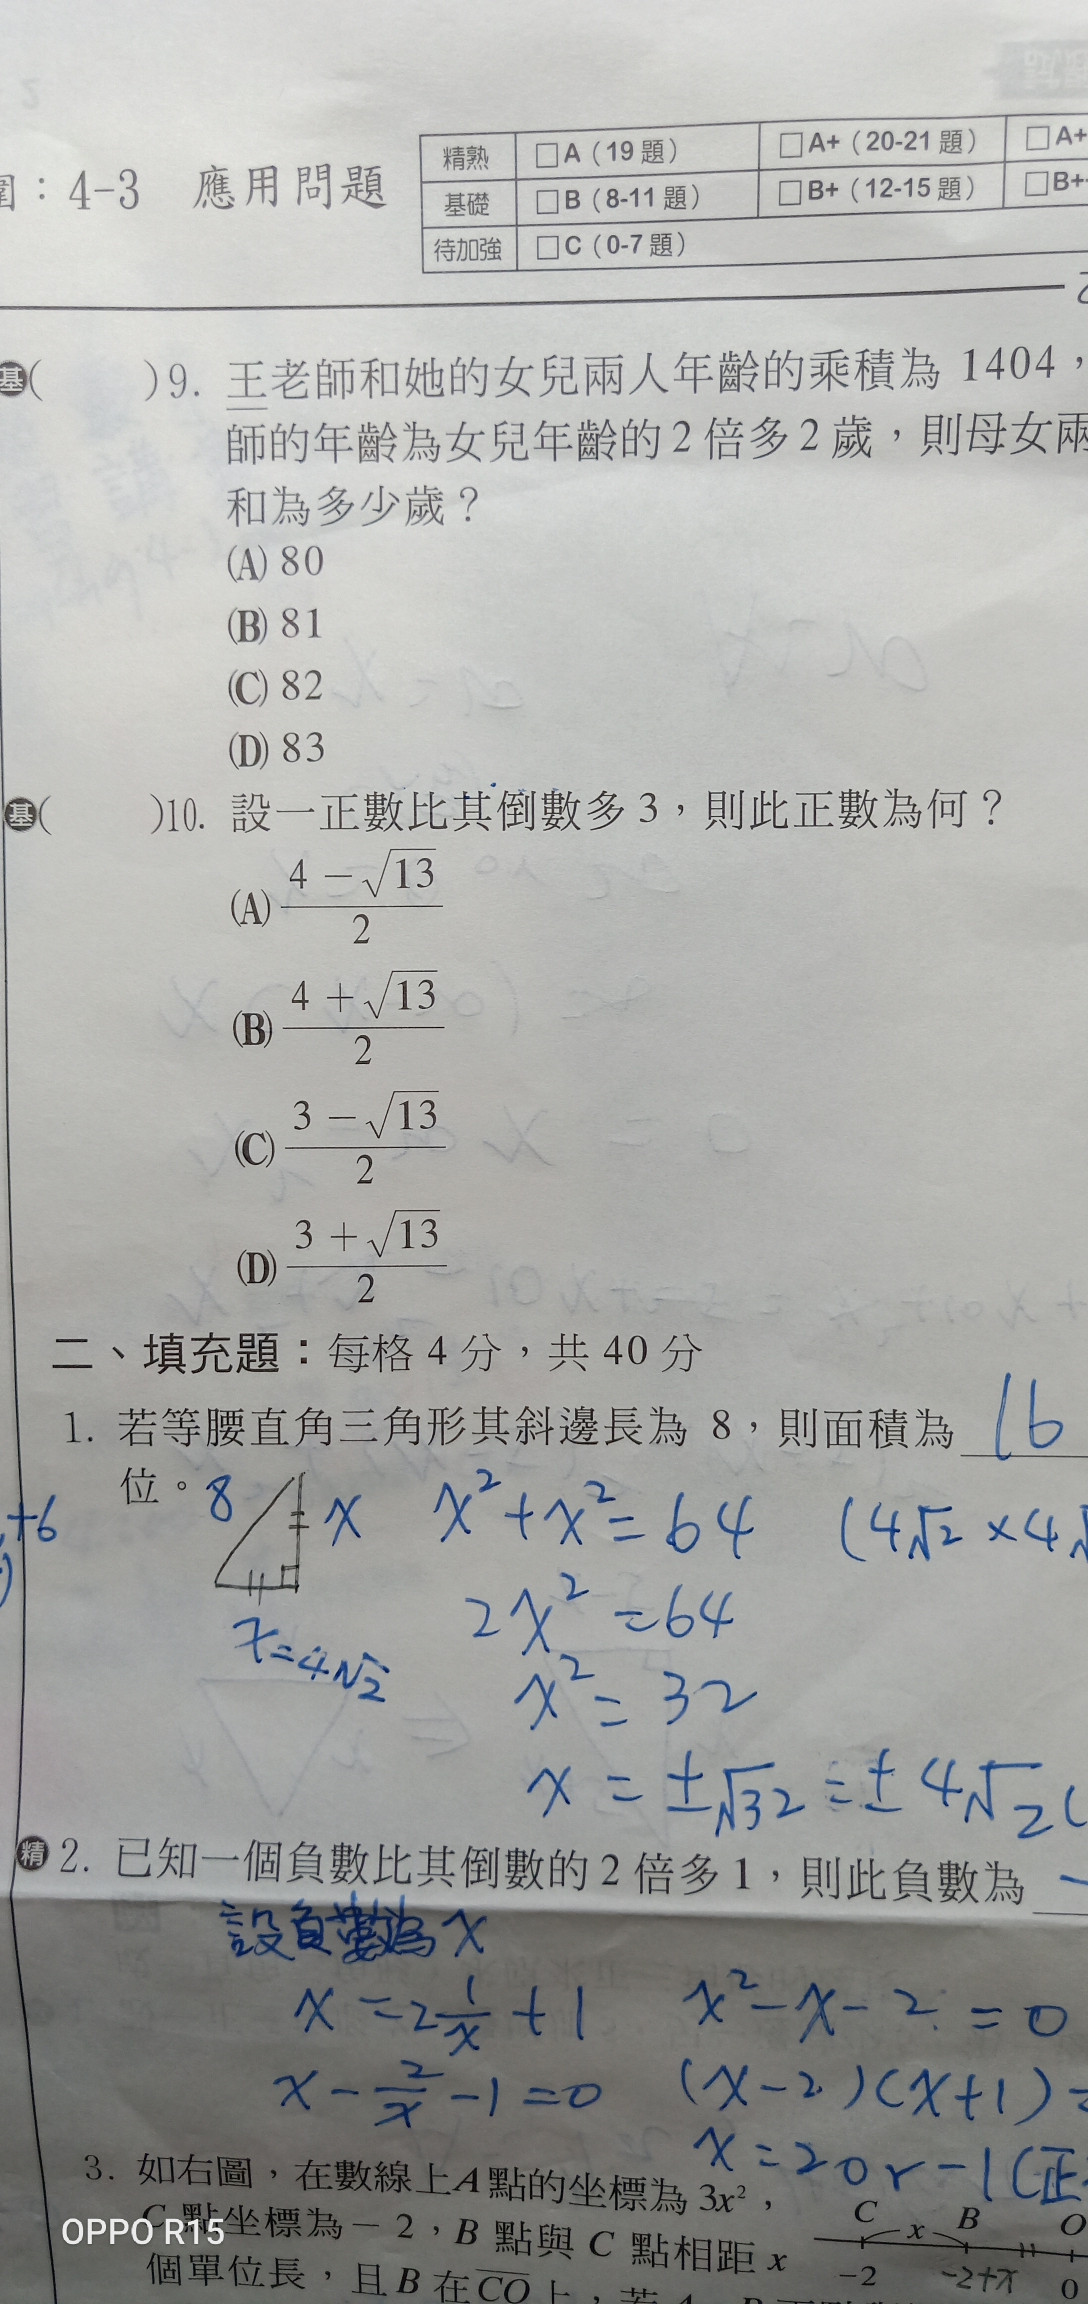 ：4-3 應用問題
精熟 □A（19題） □A+（20-21題） □A+
基礎 □B（8-11題） □B+（12-15題） □B+
待加強 □C（0-7題）
基( )9. 王老師和她的女兒兩人年齡的乘積為 1404，
師的年齡為女兒年齡的 2 倍多 2 歲，則母女兩
和為多少歲？
(A) 80
(B) 81
(C) 82
(D) 83
基( )10. 設一正數比其倒數多 3，則此正數為何？
(A) (4－√13)/2
(B) (4＋√13)/2
(C) (3－√13)/2
(D) (3＋√13)/2
二、填充題：每格 4 分，共 40 分
1. 若等腰直角三角形其斜邊長為 8，則面積為 16
位。
8 x x²+x²=64 (4√2×4√
+6
2x²=64
x=4√2
x²=32
x=±√32=±4√2(
精 2. 已知一個負數比其倒數的 2 倍多 1，則此負數為 -
設負數為x
x=2 1/x +1 x²-x-2=0
x-2/x-1=0 (x-2)(x+1)=
x=2or-1(正
3. 如右圖，在數線上A點的坐標為 3x²，
C點坐標為－2，B 點與 C 點相距 x
個單位長，且B 在CO上，若
C x B O
-2 -2+x 0
OPPO R15